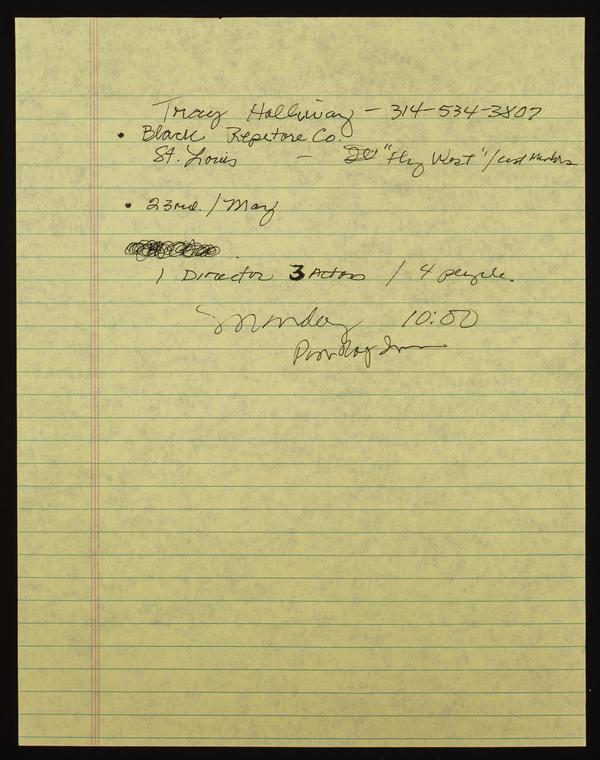 Tracy Holliway - 314-534-3807
• Black Repetore Co.
St. Louis - "Fly West" / cast Members
• 23rd. / May
1 Director 3 Actors / 4 people.
Monday 10:00
Inn